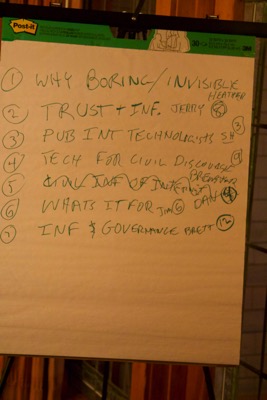 Post-it
3M
① WHY BORING/INVISIBLE
HEATHER
② TRUST + INF. JERRY
③ PUB INT TECHNOLOGISTS SH
④ TECH FOR CIVIL DISCOURSE ⑨
⑤ CIVIL INF OF INTERNET
⑥ WHATS IT FOR JIM DAN
⑦ INF & GOVERNANCE BRETT ⑫